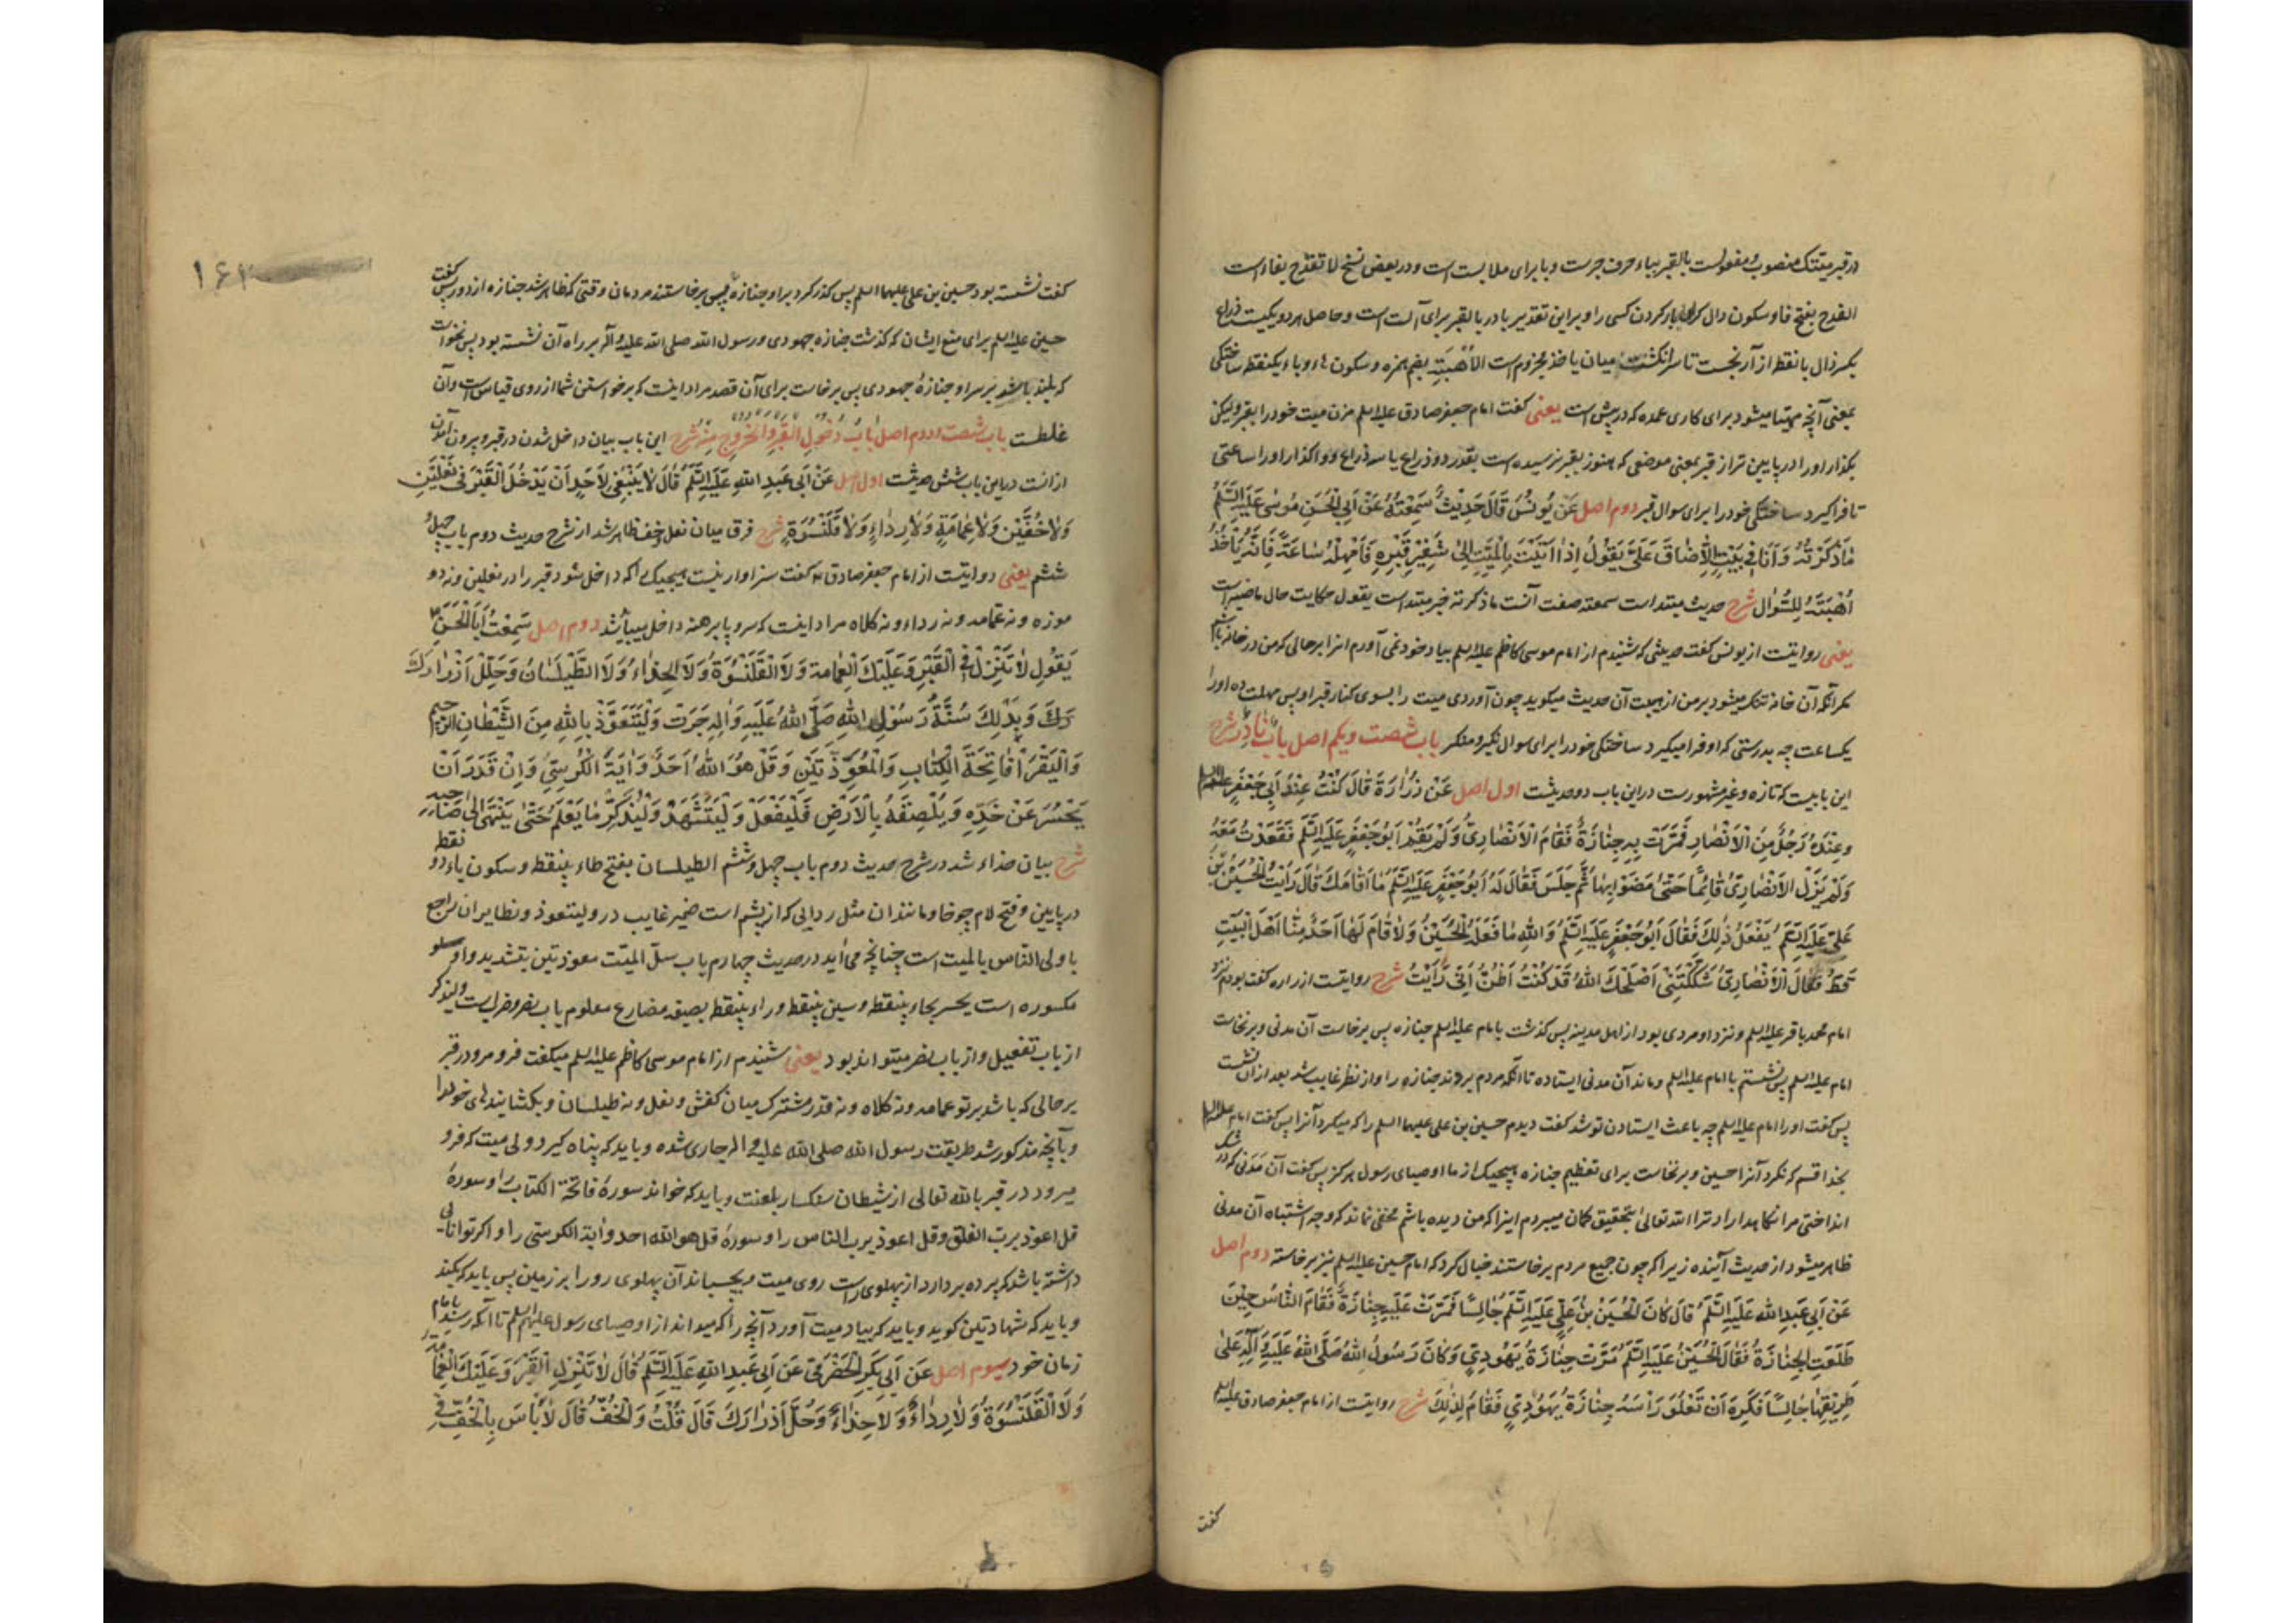 در قبر میتتک منصوب و مفعولست بالقبر بباء حرف جرست و با برای ملابست است و در بعض نسخ لا تفدح بفاء است
الفدح بفتح فا و سکون دال گران بار کردن کسی را و براین تقدیر با در بالقبر برای آلت است و حاصل هر دو یکیست ذراع
بکسر ذال بانقط از آرنجست تا سر انگشت میان یاخذ مجزوم است الاُهبَتِه بضم همزه و سکون هاء و باء یکنقط ساختگی
بمعنی آنچه مهیا میشود برای کاری عمده که در پیش است یعنی گفت امام جعفر صادق علیه السلم مزن میت خود را بقبر ولیکن
بگذار او را در پایین تر از قبر بمعنی موضعی که هنوز بقبر نرسیده است بقدر دو ذراع یا سه ذراع و واگذار او را ساعتی
تا فراگیرد ساختگی خود را برای سوال قبر دوم اصل عَن یُونُسَ قَالَ حَدِیثٌ سَمِعْتُهُ عَنْ اَبِی الْحَسَنِ مُوسٰی عَلَیهِ السَّلَمُ
مَا ذَکَرْتُهُ وَ اَنَا فِی بَیْتٍ اِلَّا ضَاقَ عَلَیَّ یَقُولُ اِذَا اَتَیْتَ بِالْمَیِّتِ اِلٰی شَفِیْرِ قَبْرِهِ فَاَمْهِلْهُ سَاعَةً فَاِنَّهُ یَأْخُذُ
اُهْبَتَهُ لِلسُّوَالِ شرح حدیث مبتداست سمعته صفت آنست ما ذکرته خبر مبتداست یقول حکایت حال ماضیه است
یعنی روایتست از یونس گفت حدیثی که شنیدم از امام موسی کاظم علیه السلم بیاد خود نمی آورم انرا بر حالی که من در خانه باشم
مگر آنکه آن خانه تنگ میشود بر من از هیبت آن حدیث میگوید چون آوردی میت را بسوی کنار قبر او پس مهلت ده او را
یکساعت چه بدرستی که او فرا میگیرد ساختگی خود را برای سوال نکیر و منکر باب شصت و یکم اصل بابٌ نادِرٌ شرح
این بابیست که تازه و غیر مشهورست دراین باب دو حدیثست اول اصل عَنْ زُرَارَةَ قَالَ کُنْتُ عِنْدَ اَبِی جَعْفَرٍ علیه السلم
وَعِنْدَهُ رَجُلٌ مِنَ الْاَنْصَارِ فَمَرَّتْ بِهِ جِنَازَةٌ فَقَامَ الْاَنْصَارِیُّ وَلَمْ یَقُمْ اَبُو جَعْفَرٍ عَلَیهِ السَّلَمُ فَقَعَدْتُ مَعَهُ
وَلَمْ یَزَلِ الْاَنْصَارِیُّ قَائِمًا حَتّٰی مَضَوْا بِهَا ثُمَّ جَلَسَ فَقَالَ لَهُ اَبُو جَعْفَرٍ عَلَیهِ السَّلَمُ مَا اَقَامَکَ قَالَ رَاَیْتُ الْحُسَیْنَ بْنَ
عَلِیٍّ عَلَیهِ السَّلَمُ یَفْعَلُ ذٰلِکَ فَقَالَ اَبُو جَعْفَرٍ عَلَیهِ السَّلَمُ وَاللّٰهِ مَا فَعَلَهُ الْحُسَیْنُ وَلَا قَامَ لَهَا اَحَدٌ مِنَّا اَهْلَ الْبَیْتِ
قَطُّ فَقَالَ الْاَنْصَارِیُّ شَکَّکْتَنِی اَصْلَحَکَ اللّٰهُ قَدْ کُنْتُ اَظُنُّ اَنِّی رَاَیْتُ شرح روایتست از زراره گفت بودم نزد
امام محمد باقر علیه السلم و نزد او مردی بود از اهل مدینه پس گذشت بامام علیه السلم جنازه پس برخاست آن مدنی و برنخاست
امام علیه السلم پس نشستم با امام علیه السلم و ماند آن مدنی ایستاده تا آنکه مردم بردند جنازه را و از نظر غایب شد بعد از آن نشست
پس گفت او را امام علیه السلم چه باعث ایستادن تو شد گفت دیدم حسین بن علی علیهما السلم را که میکرد آنرا پس گفت امام علیه السلم
بخدا قسم که نکرد آنرا حسین و برنخاست برای تعظیم جنازه هیچیک از ما اوصیای رسول هرگز پس گفت آن مَدَنی که در شک
انداختی مرا نگاهدارا د ترا الله تعالی بتحقیق گمان میبردم اینرا که من دیده باشم مخفی نماند که وجه اشتباه آن مدنی
ظاهر میشود از حدیث آینده زیرا که چون جمیع مردم برخاستند خیال کرد که امام حسین علیه السلم نیز برخاسته دوم اصل
عَنْ اَبِی عَبدِ اللّٰهِ عَلَیهِ السَّلَمُ قَالَ کَانَ الْحُسَیْنُ بْنُ عَلِیٍّ عَلَیهِ السَّلَمُ جَالِسًا فَمَرَّتْ عَلَیهِ جِنَازَةٌ فَقَامَ النَّاسُ حِیْنَ
طَلَعَتِ الْجِنَازَةُ فَقَالَ الْحُسَیْنُ عَلَیهِ السَّلَمُ مَرَّتْ جِنَازَةُ یَهُودِیٍّ وَکَانَ رَسُولُ اللّٰهِ صَلَّی اللّٰهُ عَلَیهِ وَآلِهِ عَلٰی
طَرِیْقِهَا جَالِسًا فَکَرِهَ اَنْ تَعْلُوَ رَاْسَهُ جِنَازَةُ یَهُودِیٍّ فَقَامَ لِذٰلِکَ شرح روایتست از امام جعفر صادق علیه السلم
گفت
۱۶۱
گفت نشسته بود حسین بن علی علیهما السلم پس گذر کرد بر او جنازه پس برخاستند مردمان وقتی که ظاهر شد جنازه از دور پس گفت
حسین علیه السلم برای منع ایشان که گذشت جنازه جهودی و رسول الله صلی الله علیه و آله بر راه آن نشسته بود پس نخواست
که بلند باشد بر سر او جنازهٔ جهودی پس برخاست برای آن قصد مراد اینست که برخواستن شما از روی قیاس است و آن
غلطست باب شصت و دوم اصل بَابُ دُخُولِ الْقَبْرِ وَالْخُرُوجِ مِنْهُ شرح این باب بیان داخل شدن در قبر و بیرون آمدن
ازانست دراین باب شش حدیثست اول اصل عَنْ اَبِی عَبدِ اللّٰهِ عَلَیهِ السَّلَمُ قَالَ لَا یَنْبَغِی لِاَحَدٍ اَنْ یَدْخُلَ الْقَبْرَ فِی نَعْلَیْنِ
وَلَا خُفَّیْنِ وَلَا عِمَامَةٍ وَلَا رِدَاءٍ وَلَا قَلَنْسُوَةٍ شرح فرق میان نعل و خف ظاهر شد از شرح حدیث دوم باب چهل و
ششم یعنی روایتست از امام جعفر صادق ع گفت سزاوار نیست هیچیک را که داخل شود قبر را در نعلین و نه دو
موزه و نه عمامه و نه رداء و نه کلاه مراد اینست که سر و پا برهنه داخل میباشد دوم اصل سَمِعْتُ اَبَا الْحَسَنِ ع
یَقُولُ لَا تَنْزِلْ فِی الْقَبْرِ وَعَلَیْکَ الْعِمَامة وَلَا الْقَلَنْسُوَةُ وَلَا الْحِذَاءُ وَلَا الطَّیْلَسَانُ وَحَلِّلْ اَزْرَارَکَ
وَ بِذٰلِکَ سُنَّةُ رَسُولِ اللّٰهِ صَلَّی اللّٰهُ عَلَیهِ وَآلِهِ جَرَتْ وَلْیَتَعَوَّذْ بِاللّٰهِ مِنَ الشَّیْطَانِ الرَّجِیم
وَالْیَقْرَاْ فَاتِحَةَ الْکِتَابِ وَالْمُعَوِّذَتَیْنِ وَقُلْ هُوَ اللّٰهُ اَحَدٌ وَاٰیَةَ الْکُرْسِیِّ وَاِنْ قَدَرَ اَنْ
یَحْسُرَ عَنْ خَدِّهِ وَیُلْصِقَهُ بِالْاَرْضِ فَلْیَفْعَلْ وَلْیَتَشَهَّدْ وَلْیَذْکُرْ مَا یَعْلَمُ حَتّٰی یَنْتَهِیَ اِلٰی صَاحِبِهِ
شرح بیان حذاء شد در شرح حدیث دوم باب چهل و ششم الطیلسان بفتح طاء بینقط و سکون یاء دو نقط
در پایین و فتح لام چوخا و مانند ان مثل ردایی که از پشم است ضمیر غایب در ولیتعوذ و نظایر ان راجع
باولی الناس بالمیت است چنانچه می آید در حدیث چهارم باب سلّ المیّت معوذتین بتشدید واو
مکسوره است یحسر بحاء بینقط و سین بینقط و راء بینقط بصیغه مضارع معلوم باب نصر و ضرب است ولیذکر
از باب تفعیل و از باب نصر میتواند بود یعنی شنیدم از امام موسی کاظم علیه السلم میگفت فرو مرو در قبر
بر حالی که باشد بر تو عمامه و نه کلاه و نه قدر مشترک میان کفش و نعل و نه طیلسان و بگشا بندهای خود را
و بآنچه مذکور شد طریقت رسول الله صلی الله علیه و اله جاری شده و باید که پناه گیرد ولی میت که فرو
میرود در قبر بالله تعالی از شیطان سنکسار بلعنت و باید که خواند سورهٔ فاتحة الکتاب را و سورهٔ
قل اعوذ برب الفلق و قل اعوذ برب الناس را و سورهٔ قل هو الله احد و ایة الکرسی را و اگر توانایی
داشته باشد که پرده بردارد از پهلوی راست روی میت و بچسباند آن پهلوی رو را بر زمین پس باید که بکند
و باید که شهادتین گوید و باید که بیاد میت آورد آنچه را که میداند از اوصیای رسول علیهم السلم تا آنکه رسد بامام
زمان خود سیوم اصل عَن اَبِی بَکْرٍ الْحَضْرَمِیِّ عَن اَبِی عَبدِ اللّٰهِ عَلَیهِ السَّلَمُ قَالَ لَا تَنْزِلِ الْقَبْرَ وَعَلَیْکَ الْعِمَامَة
وَلَا الْقَلَنْسُوَةُ وَلَا رِدَاءٌ وَلَا حِذَاءٌ وَحُلَّ اَزْرَارَکَ قَالَ قُلْتُ وَالْخُفُّ قَالَ لَا بَاْسَ بِالْخُفِّ فِی